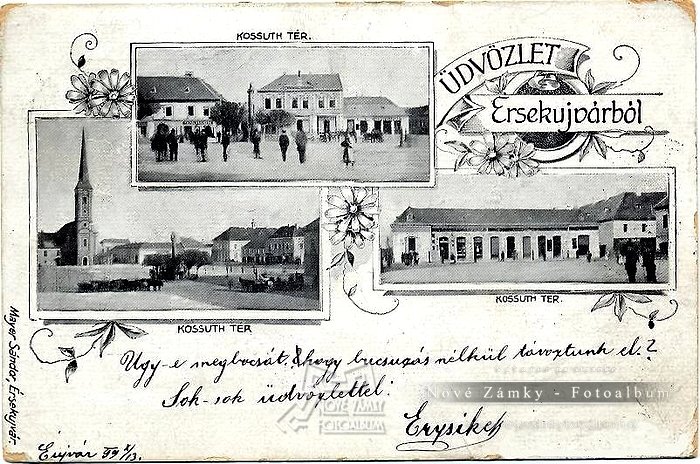 KOSSUTH TÉR.
ÜDVÖZLET
Ersekujvárból
KOSSUTH TÉR
KOSSUTH TÉR.
Mayer Sándor, Érsekujvár.
Ugy-e megbocsát, hogy bucsuzás nélkül távoztunk el?
Sok-sok üdvözlettel:
Nové Zámky - Fotoalbum
NOVÉ ZÁMKY
FOTOALBUM
Érujvár